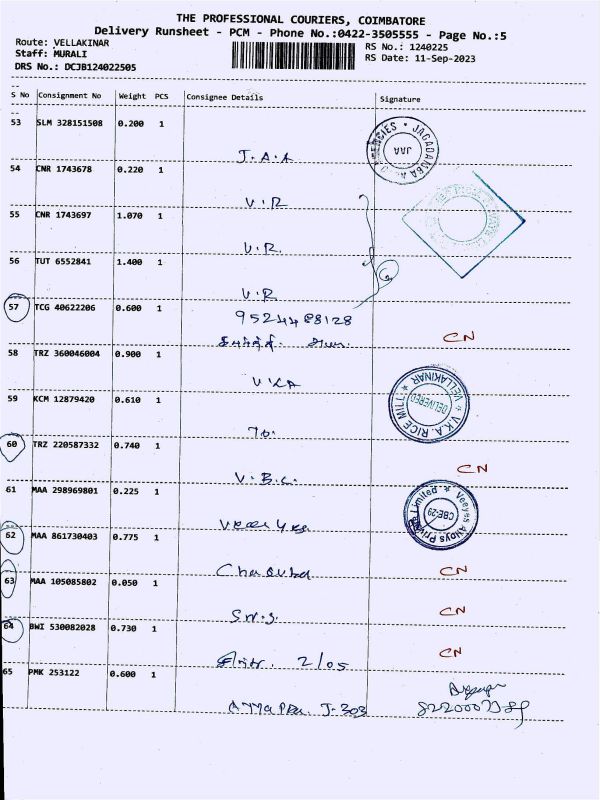 THE PROFESSIONAL COURIERS, COIMBATORE
Delivery Runsheet - PCM - Phone No.:0422-3505555 - Page No.:5
Route: VELLAKINAR
RS No.: 1240225
Staff: MURALI
RS Date: 11-Sep-2023
DRS No.: DCJB124022505
S No Consignment No Weight PCS Consignee Details Signature
53 SLM 328151508 0.200 1
J.A.A
AGENCIES * JAGADAMBA
JAA
54 CNR 1743678 0.220 1
V.R
55 CNR 1743697 1.070 1
V.R.
56 TUT 6552841 1.400 1
V.R
57 TCG 40622206 0.600 1
9524488128
CN
58 TRZ 360046004 0.900 1
V.K.A
V.K.A. RICE MILL * VELLAKINAR *
DELIVERED
59 KCM 12879420 0.610 1
To.
60 TRZ 220587332 0.740 1
CN
V.B.C.
61 MAA 298969801 0.225 1
Veeyes Alloys Private Limited *
CBE-29
62 MAA 861730403 0.775 1
CN
63 MAA 105085802 0.050 1
CN
64 BWI 530082028 0.730 1
CN
2/05
65 PMK 253122 0.600 1
J-303